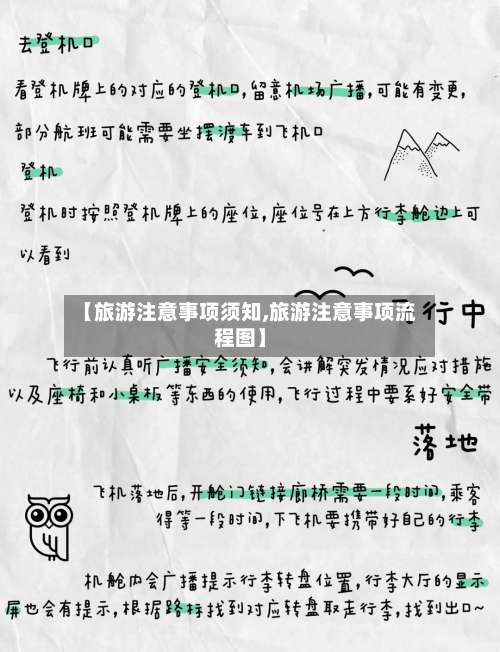 去登机口
看登机牌上的对应的登机口,留意机场广播,可能有变更,
部分航班可能需要坐摆渡车到飞机口
登机
登机时按照登机牌上的座位,座位号在上方行李舱边上可
以看到
【旅游注意事项须知,旅游注意事项流
程图】
行中
飞行前认真听广播安全须知,会讲解突发情况应对措施
以及座椅和小桌板等东西的使用,飞行过程中要系好安全带
落地
飞机落地后,开舱门链接廊桥需要一段时间,乘客
得等一段时间,下飞机要携带好自己的行李
机舱内会广播提示行李转盘位置,行李大厅的显示
屏也会有提示,根据路标找到对应转盘取走行李,找到出口~